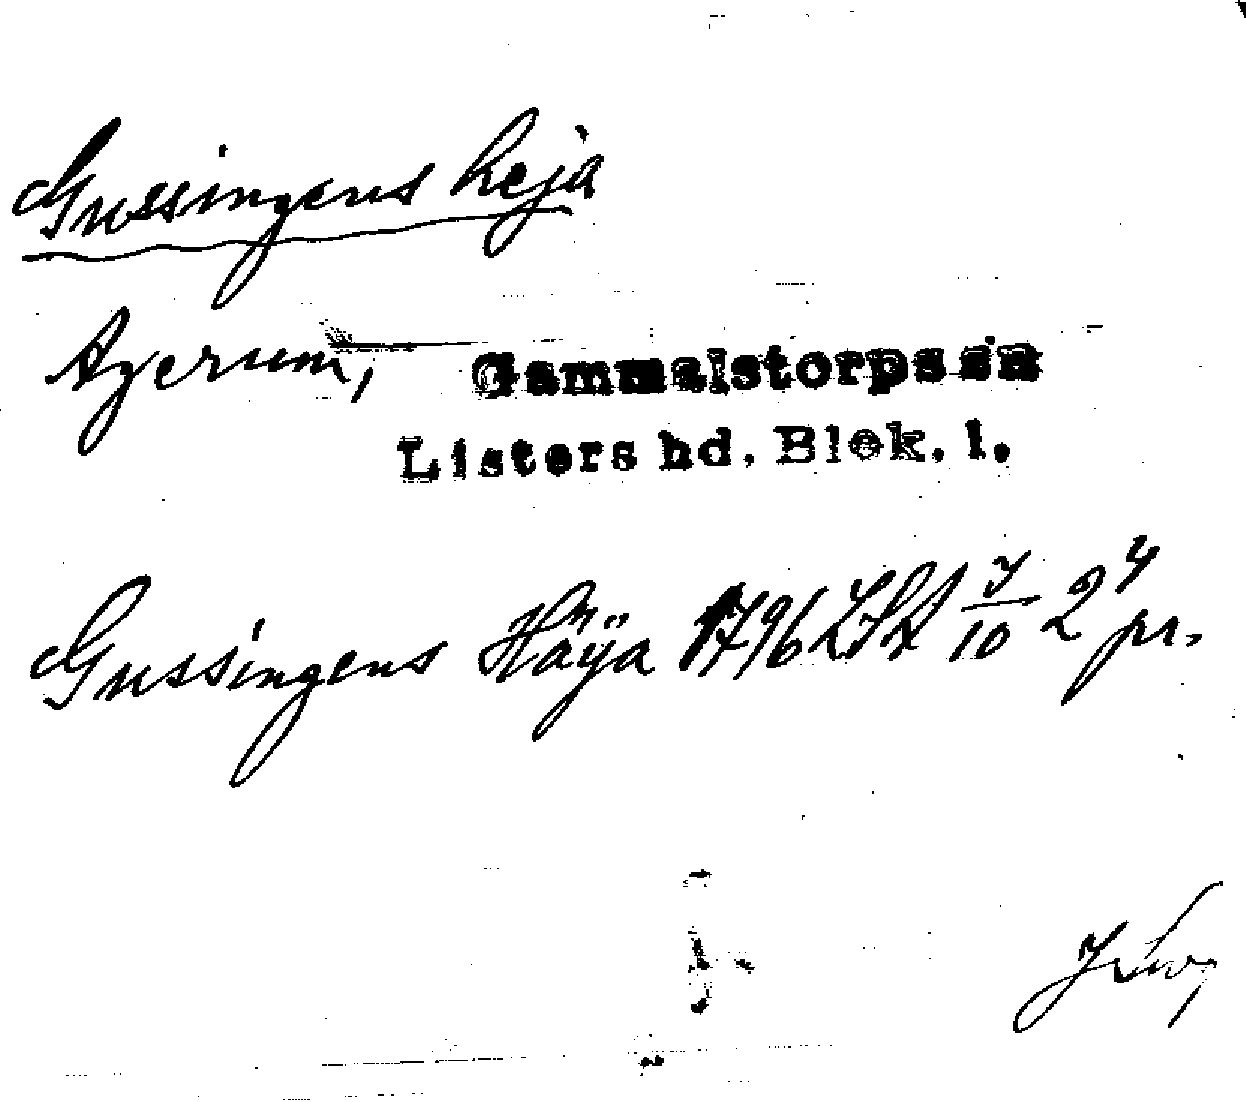 Gussingens heja
Agerum,
Gammalstorps sn
Listers hd. Blek. l.
Gussingens Häÿa 1796 LSA 7/10 24 pr.